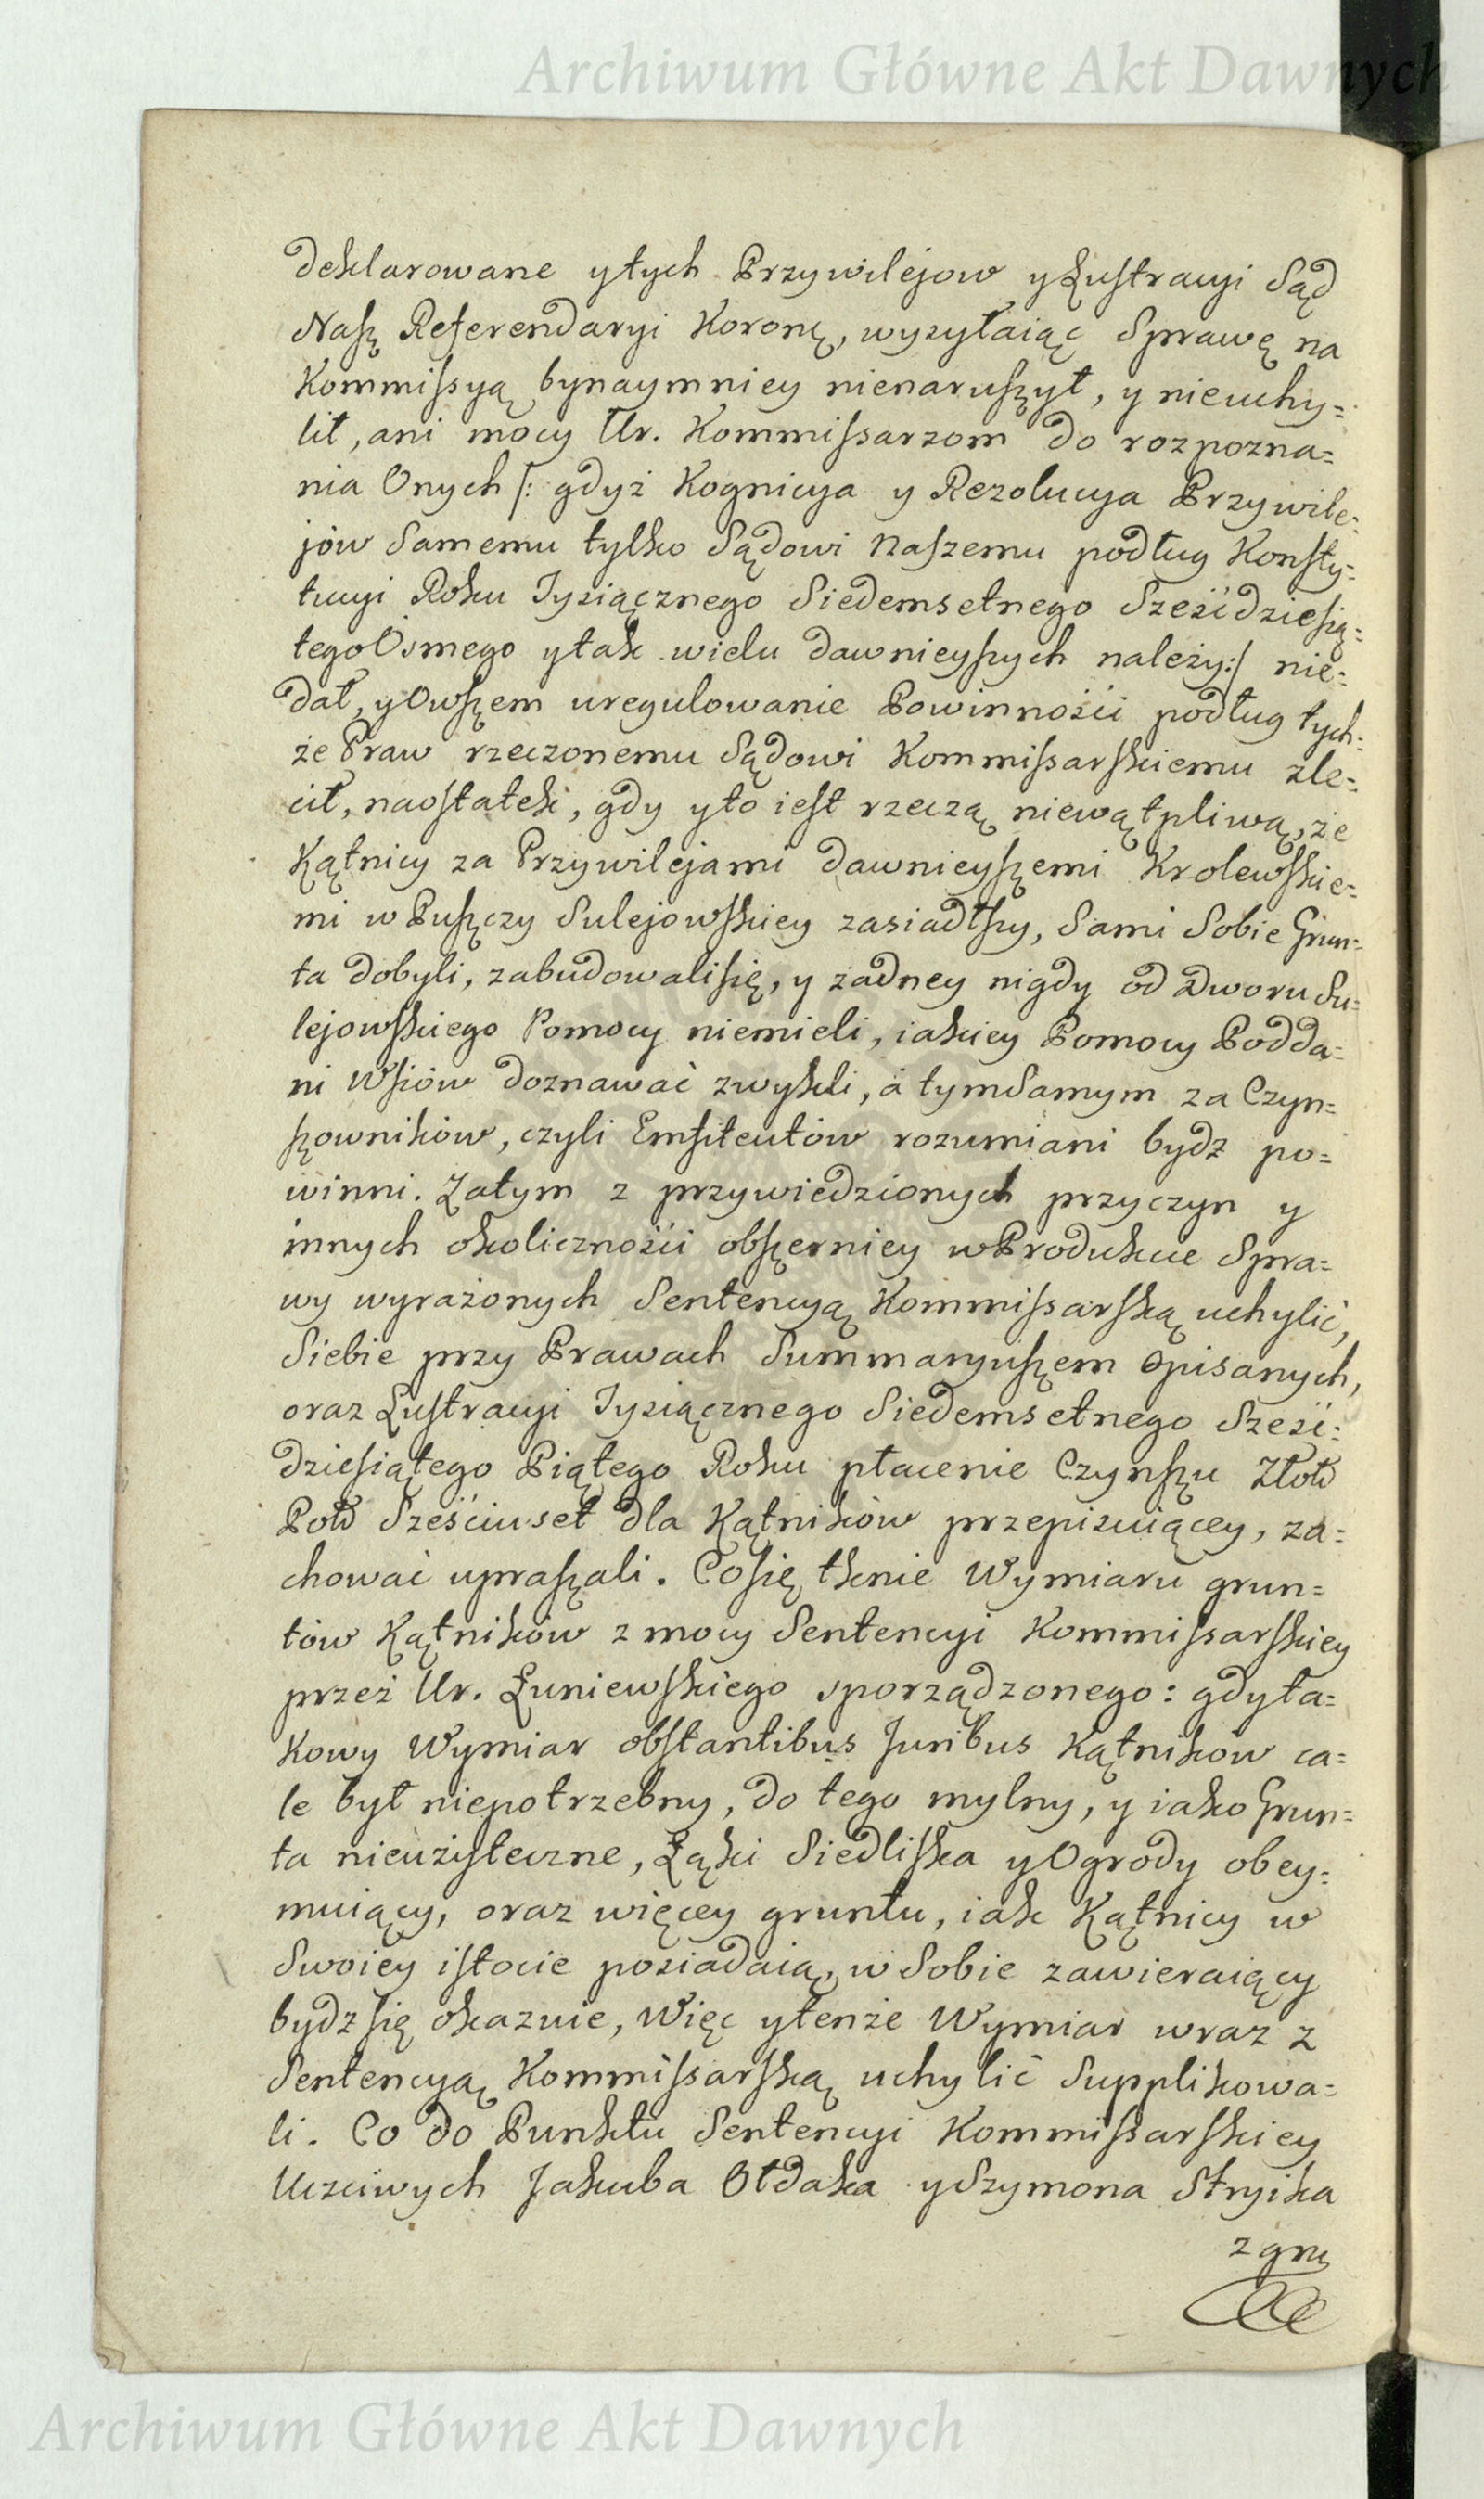 Archiwum Główne Akt Dawnych
deklarowane y tych Przywilejow y Lustracyi Sąd
Nasz Referendaryi Koronę, wyzyłaiąc Sprawę na
Kommissyą bynaymniey nienaruszył, y nieuchy=
lił, ani mocy Ur. Kommissarzom do rozpozna=
nia Onych /: gdyż Kognicya y Rezolucya Przywile=
jów Samemu tylko Sądowi Naszemu podług Konsty=
tucyi Roku Tysiącznego Siedemsetnego Sześćdziesią=
tego Osmego y tak wielu dawnieyszych należy :/ nie=
dał, y Owszem uregulowanie Powinności podług tych=
że Praw rzeczonemu Sądowi Kommissarskiemu zle=
cił, naostatek, gdy y to iest rzeczą niewątpliwą, że
Kątnicy za Przywilejami dawnieyszemi Krolewskie=
mi w Puszczy Sulejowskiey zasiadłszy, Sami Sobie Grun=
ta dobyli, zabudowali się, y żadney nigdy od Dworu Su=
lejowskiego Pomocy niemieli, iakiey Pomocy Podda=
ni Wsiów doznawać zwykli, á tym Samym za Czyn=
szowników, czyli Emfiteutów rozumiani bydz po=
winni. Zatym z przywiedzionych przyczyn y
innych okoliczności obszerniey w Produkcie Spra=
wy wyrażonych Sentencyą Kommissarską uchylić,
Siebie przy Prawach Summaryuszem Opisanych,
oraz Lustracyi Tysiącznego Siedemsetnego Sześć=
dziesiątego Piątego Roku płacenie Czynszu Złotᵈ
Polᵈ Sześciuset dla Kątników przepisuiącey, za=
chować upraszali. Co się tknie Wymiaru grun=
tów Kątników z mocy Sentencyi Kommissarskiey
przez Ur. Łuniewskiego sporządzonego: gdy ta=
kowy Wymiar obstantibus Juribus Kątnikow ca=
le był niepotrzebny, do tego mylny, y iako Grun=
ta nieużyteczne, Łąki Siedliska y Ogrody obey=
muiący, oraz więcey gruntu, iak Kątnicy w
Swoiey istocie posiadaią, w Sobie zawieraiący
bydz się okazuie, Więc y tenże Wymiar wraz z
Sentencyą Kommissarską uchylić Supplikowa=
li. Co do Punktu Sentencyi Kommissarskiey
Uczciwych Jakuba Oldaka y Szymona Stryika
z gru
Archiwum Główne Akt Dawnych